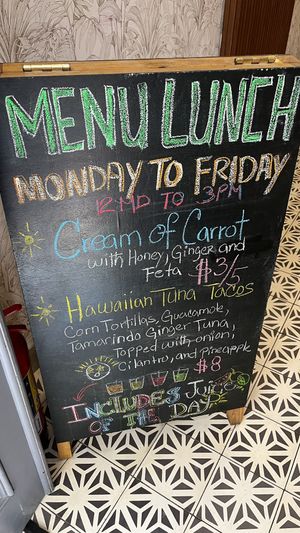 MENU LUNCH
MONDAY TO FRIDAY
12MD TO 3PM
Cream of Carrot
with Honey, Ginger and
Feta $3/5
Hawaiian Tuna Tacos
Corn Tortillas, Guacamole,
Tamarindo Ginger Tuna,
Topped with onion,
Cilantro, and Pineapple
$8
INCLUDES Juice
OF THE DAY